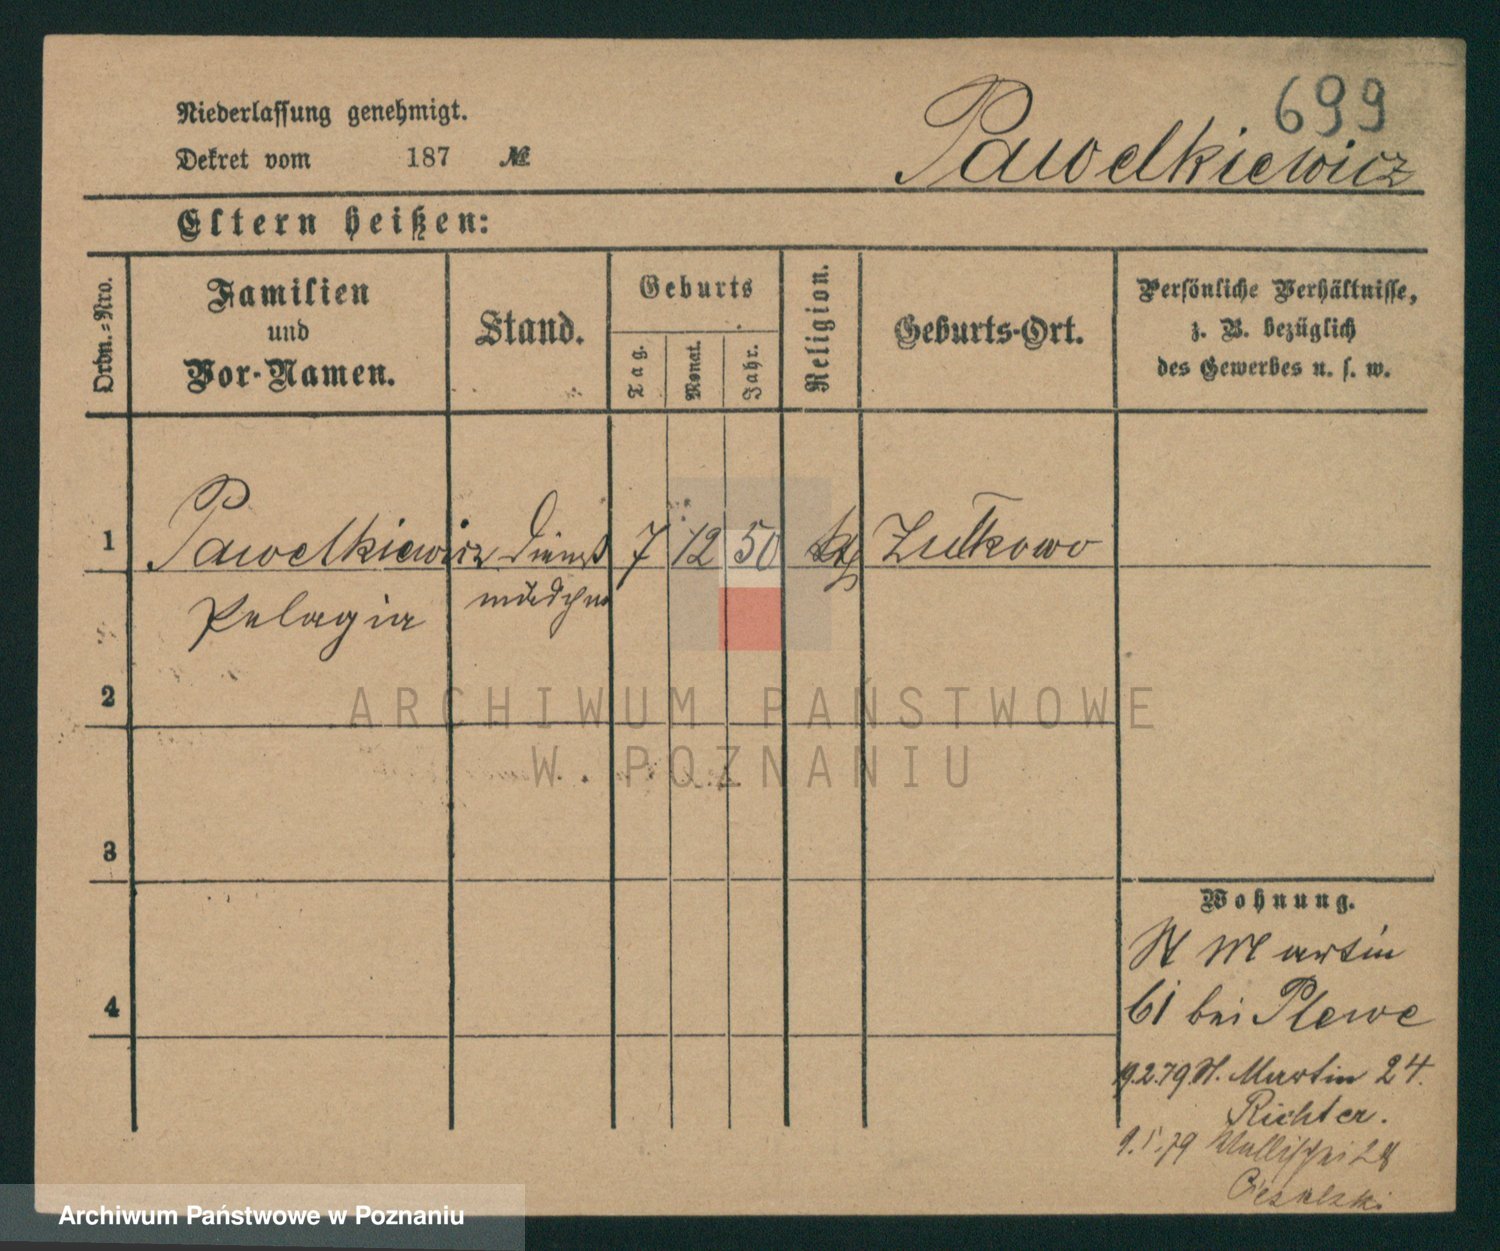 699
Niederlassung genehmigt.
Dekret vom 187 №
Pawelkiewicz
Eltern heißen:
Ordn.-Nro.
Familien
und
Vor-Namen.
Stand.
Geburts
Tag.
Monat.
Jahr.
Religion.
Geburts-Ort.
Persönliche Verhältnisse,
z. B. bezüglich
des Gewerbes u. s. w.
1 Pawelkiewicz Dienst 7 12 50 kth
Pelagia mädchen
2
ARCHIWUM PAŃSTWOWE
W POZNANIU
3
Wohnung.
St Martin
61 bei Plewe
4
19.2.79 St. Martin 24.
Richter.
79 Wallischei 28
Archiwum Państwowe w Poznaniu